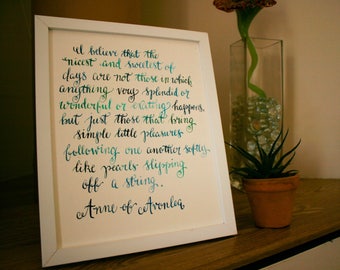 "I believe that the
nicest and sweetest of
days are not those in which
anything very splendid or
wonderful or exciting happens
but just those that bring
simple little pleasures
following one another softly
like pearls slipping
off a string.
Anne of Avonlea